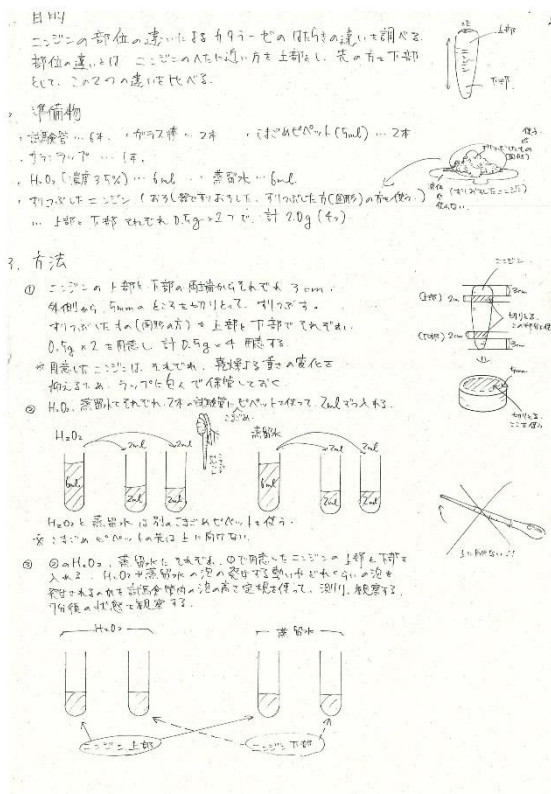 目的
ニンジンの部位の違いによるカタラーゼのはたらきの違いを調べる。
部位の違いとは ニンジンのへたに近い方を上部とし、先の方を下部
として、この2つの違いを比べる。
上部
下部
2. 準備物
・試験管…6本 ・ガラス棒…2本 ・こまごめピペット(5ml)…2本
・サランラップ…1本
・H₂O₂(濃度3.5%)…6ml ・蒸留水…6ml
・すりつぶしたニンジン(おろし器ですりおろした、すりつぶした方(固形)の方を使う。)
… 上部と下部 それぞれ0.5g×2つで、計2.0g(4つ)
使う
すりつぶしたもの
(固形)
使わない
(すりおろしたニンジン)
3. 方法
① ニンジンの上部と下部の両端からそれぞれ3cm、
外側から5mmのところを切りとって、すりつぶす。
すりつぶしたもの(固形の方)を上部と下部でそれぞれ
0.5g×2を用意し、計0.5g×4用意する。
※用意したニンジンは、それぞれ、乾燥による重さの変化を
抑えるため、ラップに包んで保管しておく。
ニンジン
3cm
(上部) 2cm
切りとる
(下部) 2cm
3cm
5mm
切りとる
ここを使う
② H₂O₂、蒸留水をそれぞれ、2本の試験管にピペットを使って、2mlずつ入れる。
こまごめ
H₂O₂ 2ml 2ml
蒸留水 2ml 2ml
6ml 2ml 2ml
6ml 2ml 2ml
H₂O₂と蒸留水は別のこまごめピペットを使う。
※こまごめピペットの先は上に向けない。
上に向けない!!
③ ②のH₂O₂、蒸留水にそれぞれ、①で用意したニンジンの上部と下部を
入れる。H₂O₂や蒸留水の泡の発生する勢いやどれくらいの泡を
発生されるのかを試験管内の泡の高さを定規を使って、測り、観察する。
7分後の状態を観察する。
H₂O₂
蒸留水
ニンジン上部
ニンジン下部